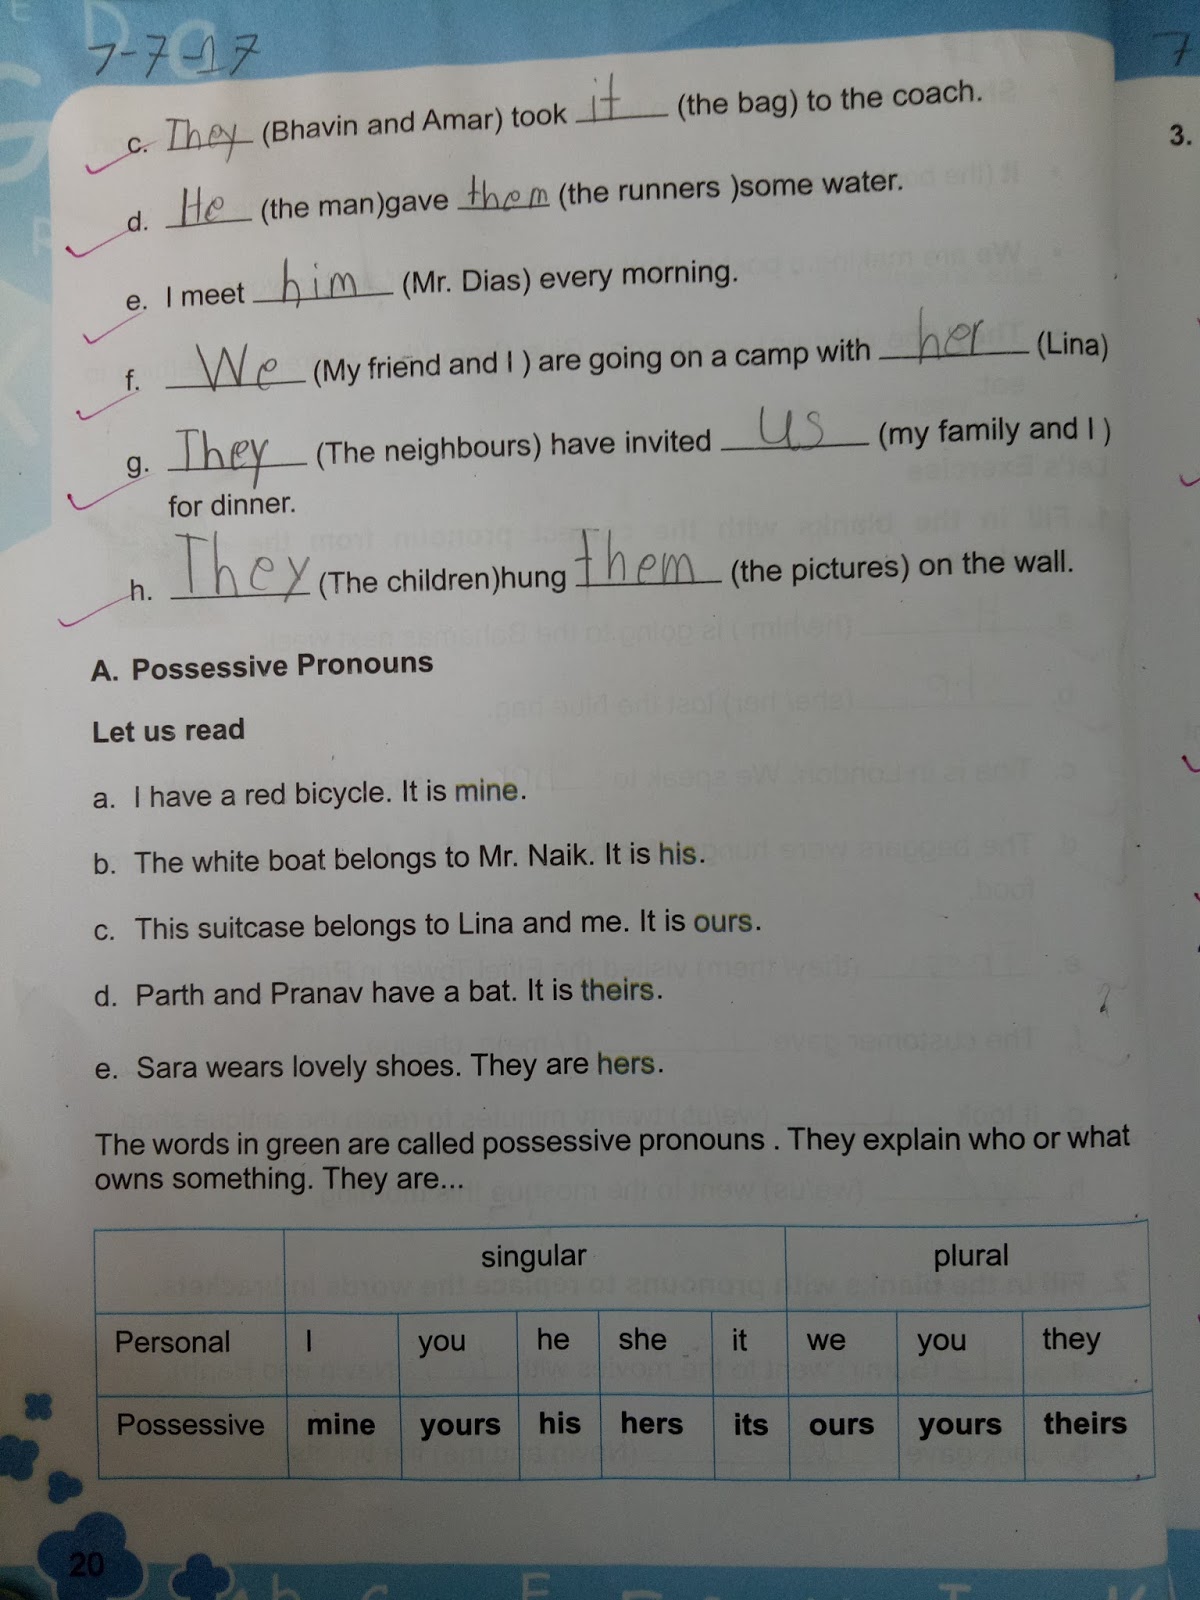 7-7-17
c. They (Bhavin and Amar) took it (the bag) to the coach.
d. He (the man)gave them (the runners )some water.
e. I meet him (Mr. Dias) every morning.
f. We (My friend and I ) are going on a camp with her (Lina)
g. They (The neighbours) have invited us (my family and I )
for dinner.
h. They (The children)hung them (the pictures) on the wall.
A. Possessive Pronouns
Let us read
a. I have a red bicycle. It is mine.
b. The white boat belongs to Mr. Naik. It is his.
c. This suitcase belongs to Lina and me. It is ours.
d. Parth and Pranav have a bat. It is theirs.
e. Sara wears lovely shoes. They are hers.
The words in green are called possessive pronouns . They explain who or what
owns something. They are...
singular plural
Personal I you he she it we you they
Possessive mine yours his hers its ours yours theirs
20
7
3.